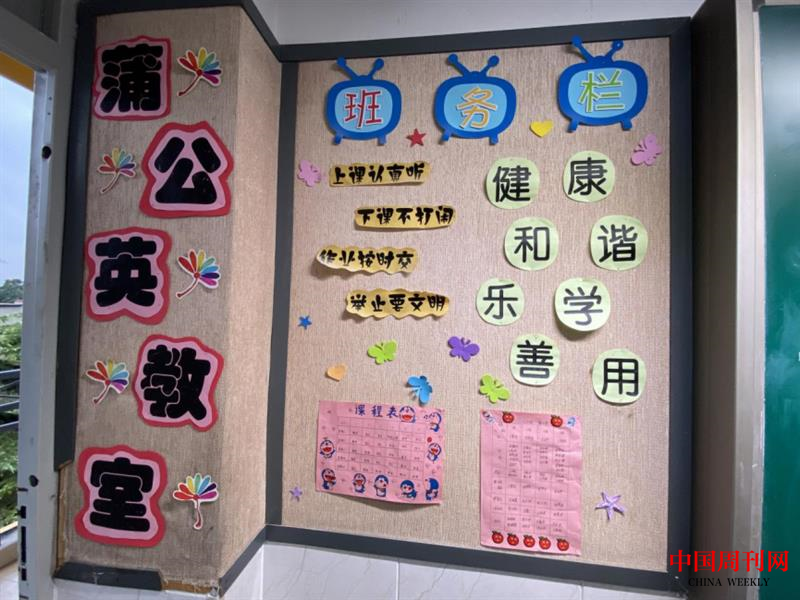 蒲公英教室
班务栏
上课认真听
下课不打闹
作业按时交
举止要文明
健康
和谐
乐学
善用
课程表
中国周刊网
CHINA WEEKLY